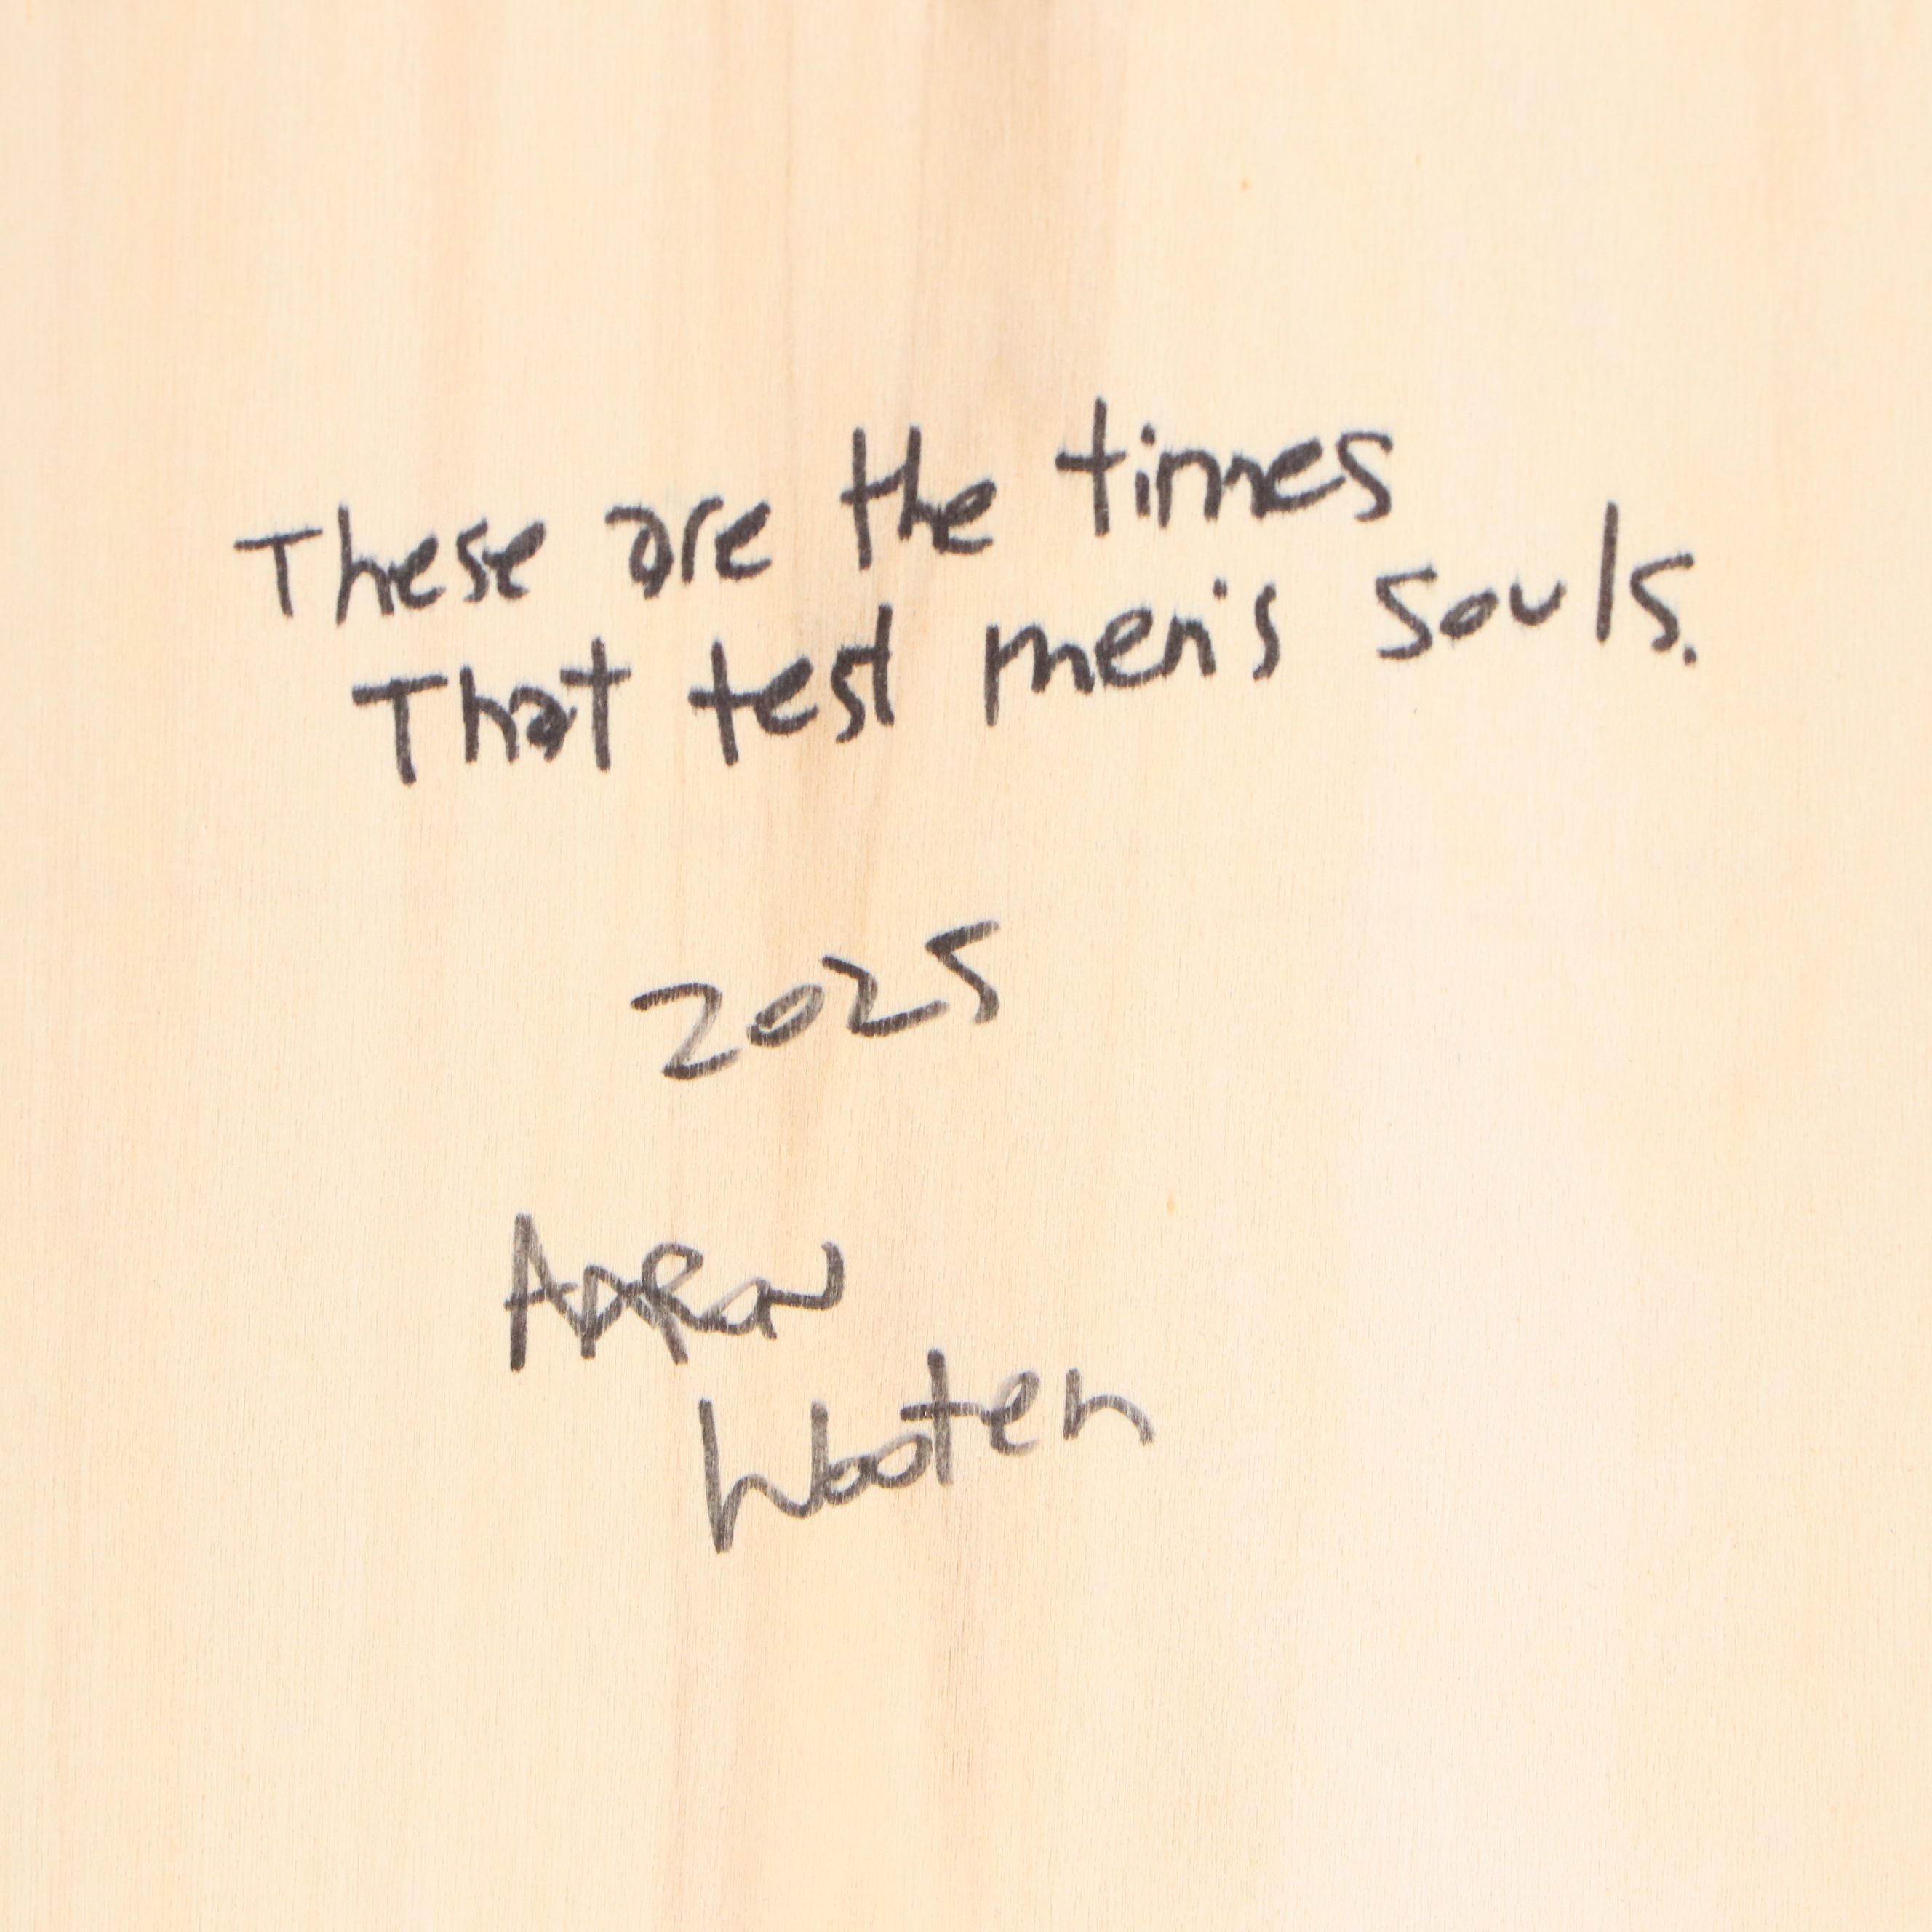 These are the times
That test men's souls.
2025
AARON
Wooten